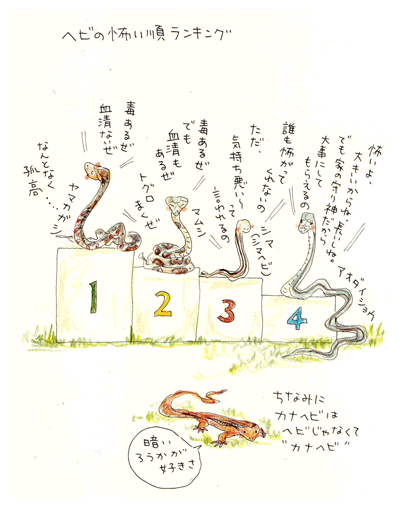 ヘビの怖い順ランキング
毒あるぜ
血清ないぜ
ヤマカガシ
なんとなく…
孤高
毒あるぜ
でも
血清も
あるぜ
トグロ
まくぜ
マムシ
誰も怖がって
くれないの
ただ、
気持ち悪い〜って
言われるの
シマ
(シマヘビ)
怖いよ、
大きいからね・長いしね。
でも家の守り神だから
大事にして
もらえるの
アオダイショウ
1
2
3
4
ちなみに
カナヘビは
ヘビじゃなくて
"カナヘビ"
暗い
ろうかが
好きさ